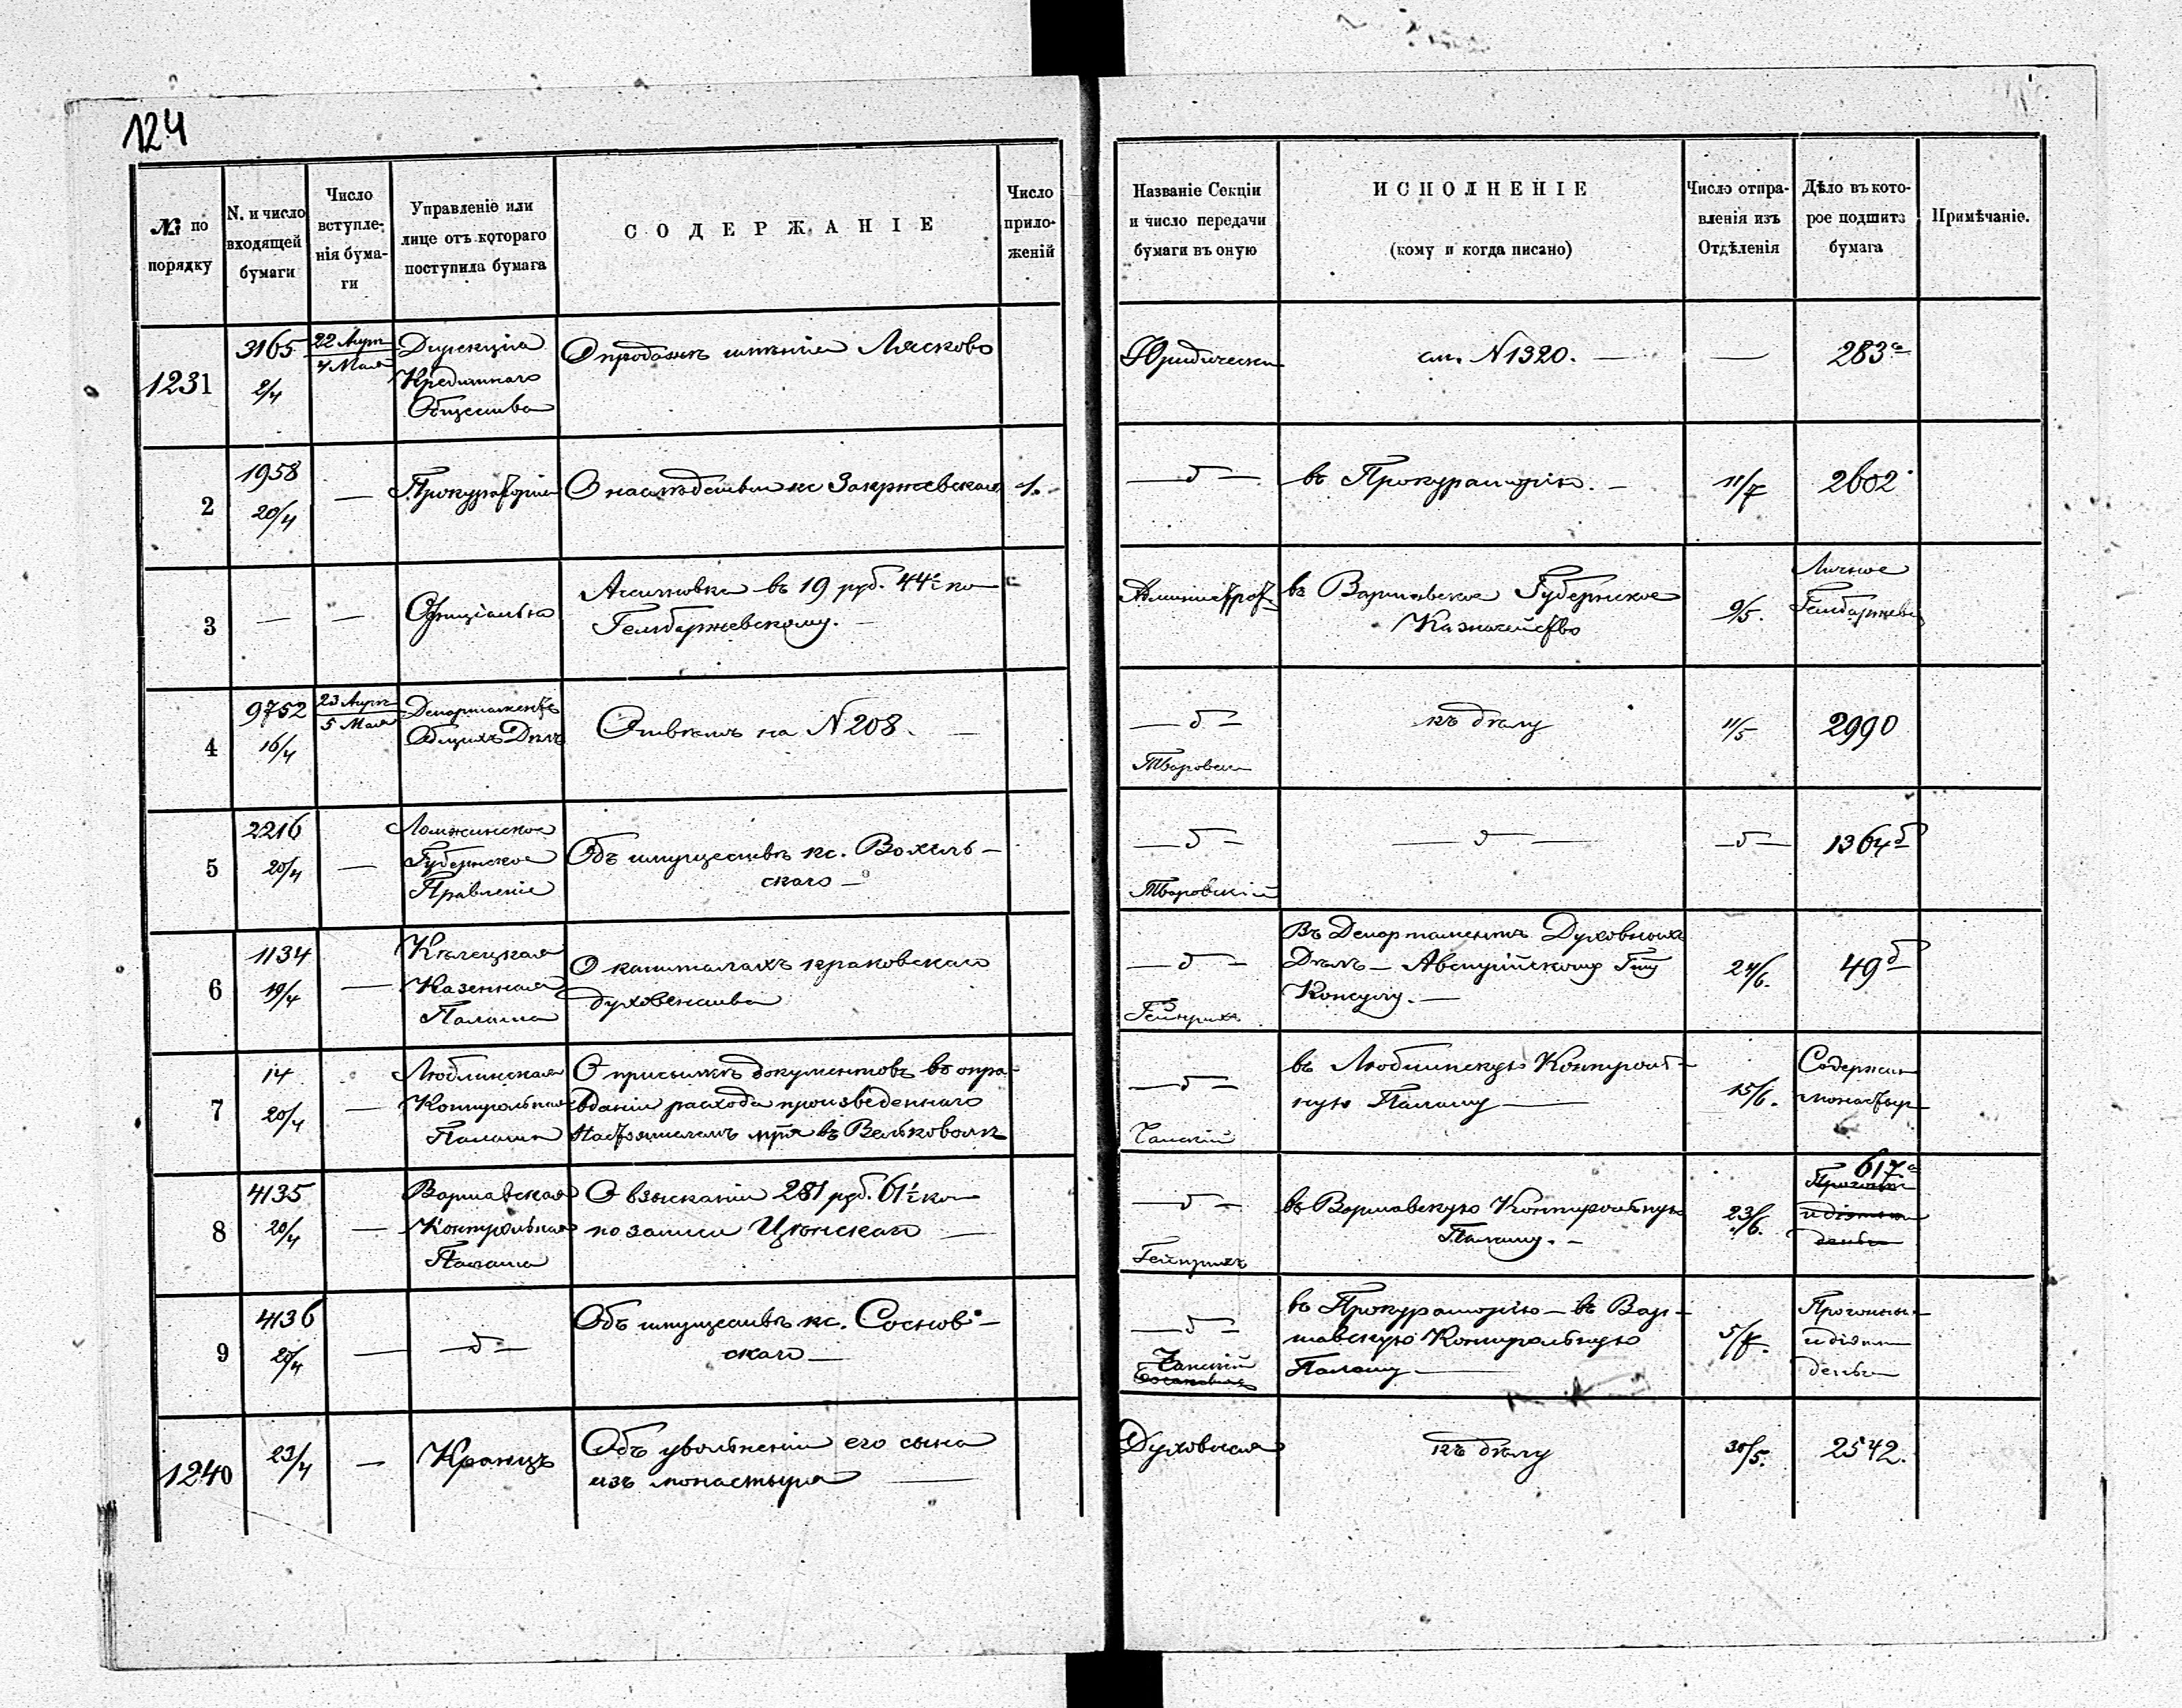 124
№ по порядку
N. и число входящей бумаги
Число вступле-нія бума-ги
Управленіе или лице отъ котораго поступила бумага
СОДЕРЖАНІЕ
Число прило-женій
Названіе Секціи и число передачи бумаги въ оную
ИСПОЛНЕНІЕ
(кому и когда писано)
Число отпра-вленія изъ Отдѣленія
Дѣло въ кото-рое подшита бумага
Примѣчаніе.
1231
3165
2/4
22 Апр
4 Мая
Дирекція
Кредитнаго
Общества
О продажѣ имѣнія Лясково
Юридическ
см. N 1320. —
—
283а
2
1958
20/4
—
Прокураторія
О наслѣдствѣ кс Закржевскаго
1.
— д —
въ Прокураторію. —
11/7
2602
3
—
—
Официально
Ассигновка въ 19 руб. 44½ ко
Гембаржевскому. —
Администрат.
въ Варшавское Губернское
Казначейство
9/5.
Личное
Гембаржевс
4
9752
16/4
23 Апр
5 Мая
Департаментъ
Общихъ Дѣлъ
Отвѣтъ на N 208. —
— д —
Тваровск
къ дѣлу
11/5
2990
5
2216
20/4
—
Ломжинское
Губернское
Правленіе
Объ имуществѣ кс. Вохель-
скаго —
— д —
Тваровскій
— д —
— д —
1364д
6
1134
19/4
—
Кѣлецкая
Казенная
Палата
О капиталахъ краковскаго
духовенства
— д —
Гейнрихъ
Въ Департаментъ Духовныхъ
Дѣлъ — Австрійскому Гну
Консулу. —
24/6.
49д
7
14
20/4
—
Люблинская
Контрольная
Палата
О присылкѣ документовъ въ опра-
вданіи расхода произведеннаго
Настоятелемъ мря въ Вельковолѣ
— д —
Чапскій
въ Люблинскую Контроль-
ную Палату —
15/6.
Содержан
монастыр
8
4135
20/4
—
Варшавская
Контрольная
Палата
О взысканіи 281 руб. 61½ ко
по записи Цѣнскаго —
— д —
Гейнрихъ
въ Варшавскую Контрольную
Палату. —
23/6.
617а
Прогоны
и діэтн
деньги
9
4136
20/4
—
— д —
Объ имуществѣ кс. Соснов-
скаго —
— д —
Чапскій
въ Прокураторію — въ Вар-
шавскую Контрольную
Палату —
5/7.
Прогонны
и діэтн
деньги
1240
23/4
—
Кранцъ
Объ увольненіи его сына
изъ монастыря —
Духовная
къ дѣлу
30/5.
2542.